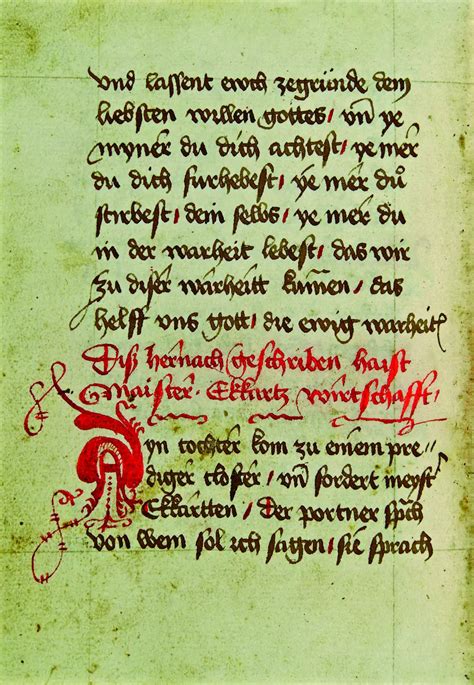 vnd lassent ewch zegrúnde dem
liebsten willen gottes / vn̄ ye
myner du dich achtest / ye mer
du dich furhebest / ye mer dů
stirbest / dein selbs / ye mer du
in der warheit lebest / das wir
zu diser warheitt kum̄en / das
helff vns gott / die ewig warheit
Diß hernach geschriben haist
Maister Ekkartz wirtschafft /
Ayn tochter kom zu einem pre⸗
diger closter / vn̄ fordert meyst̾
Ekkartten / Der portner sp̄ch
von wem sol ich sagen / sie sprach